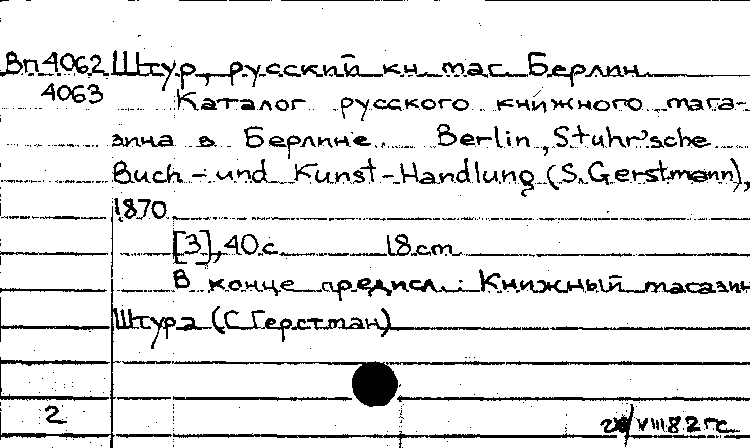 Вп4062 Штур, русский кн. маг. Берлин.
4063 Каталог русского книжного мага-
зина в Берлине. Berlin, Stuhr'sche
Buch-und Kunst-Handlung (S. Gerstmann),
1870.
[3], 40 с. 18 cm
В конце предисл.: Книжный магазин
Штура (С Герстман)
2
VIII.82 гс